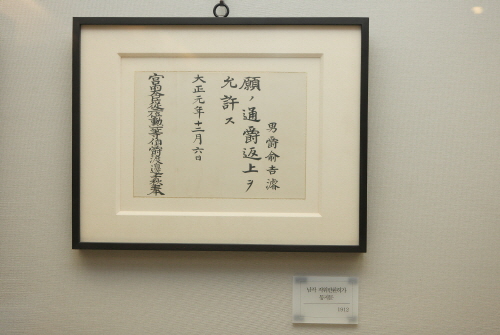 男爵兪吉濬
願ノ通爵返上ヲ
允許ス
大正元年十二月六日
宮內大臣從二位勳一等伯爵渡邊千秋奉
1912